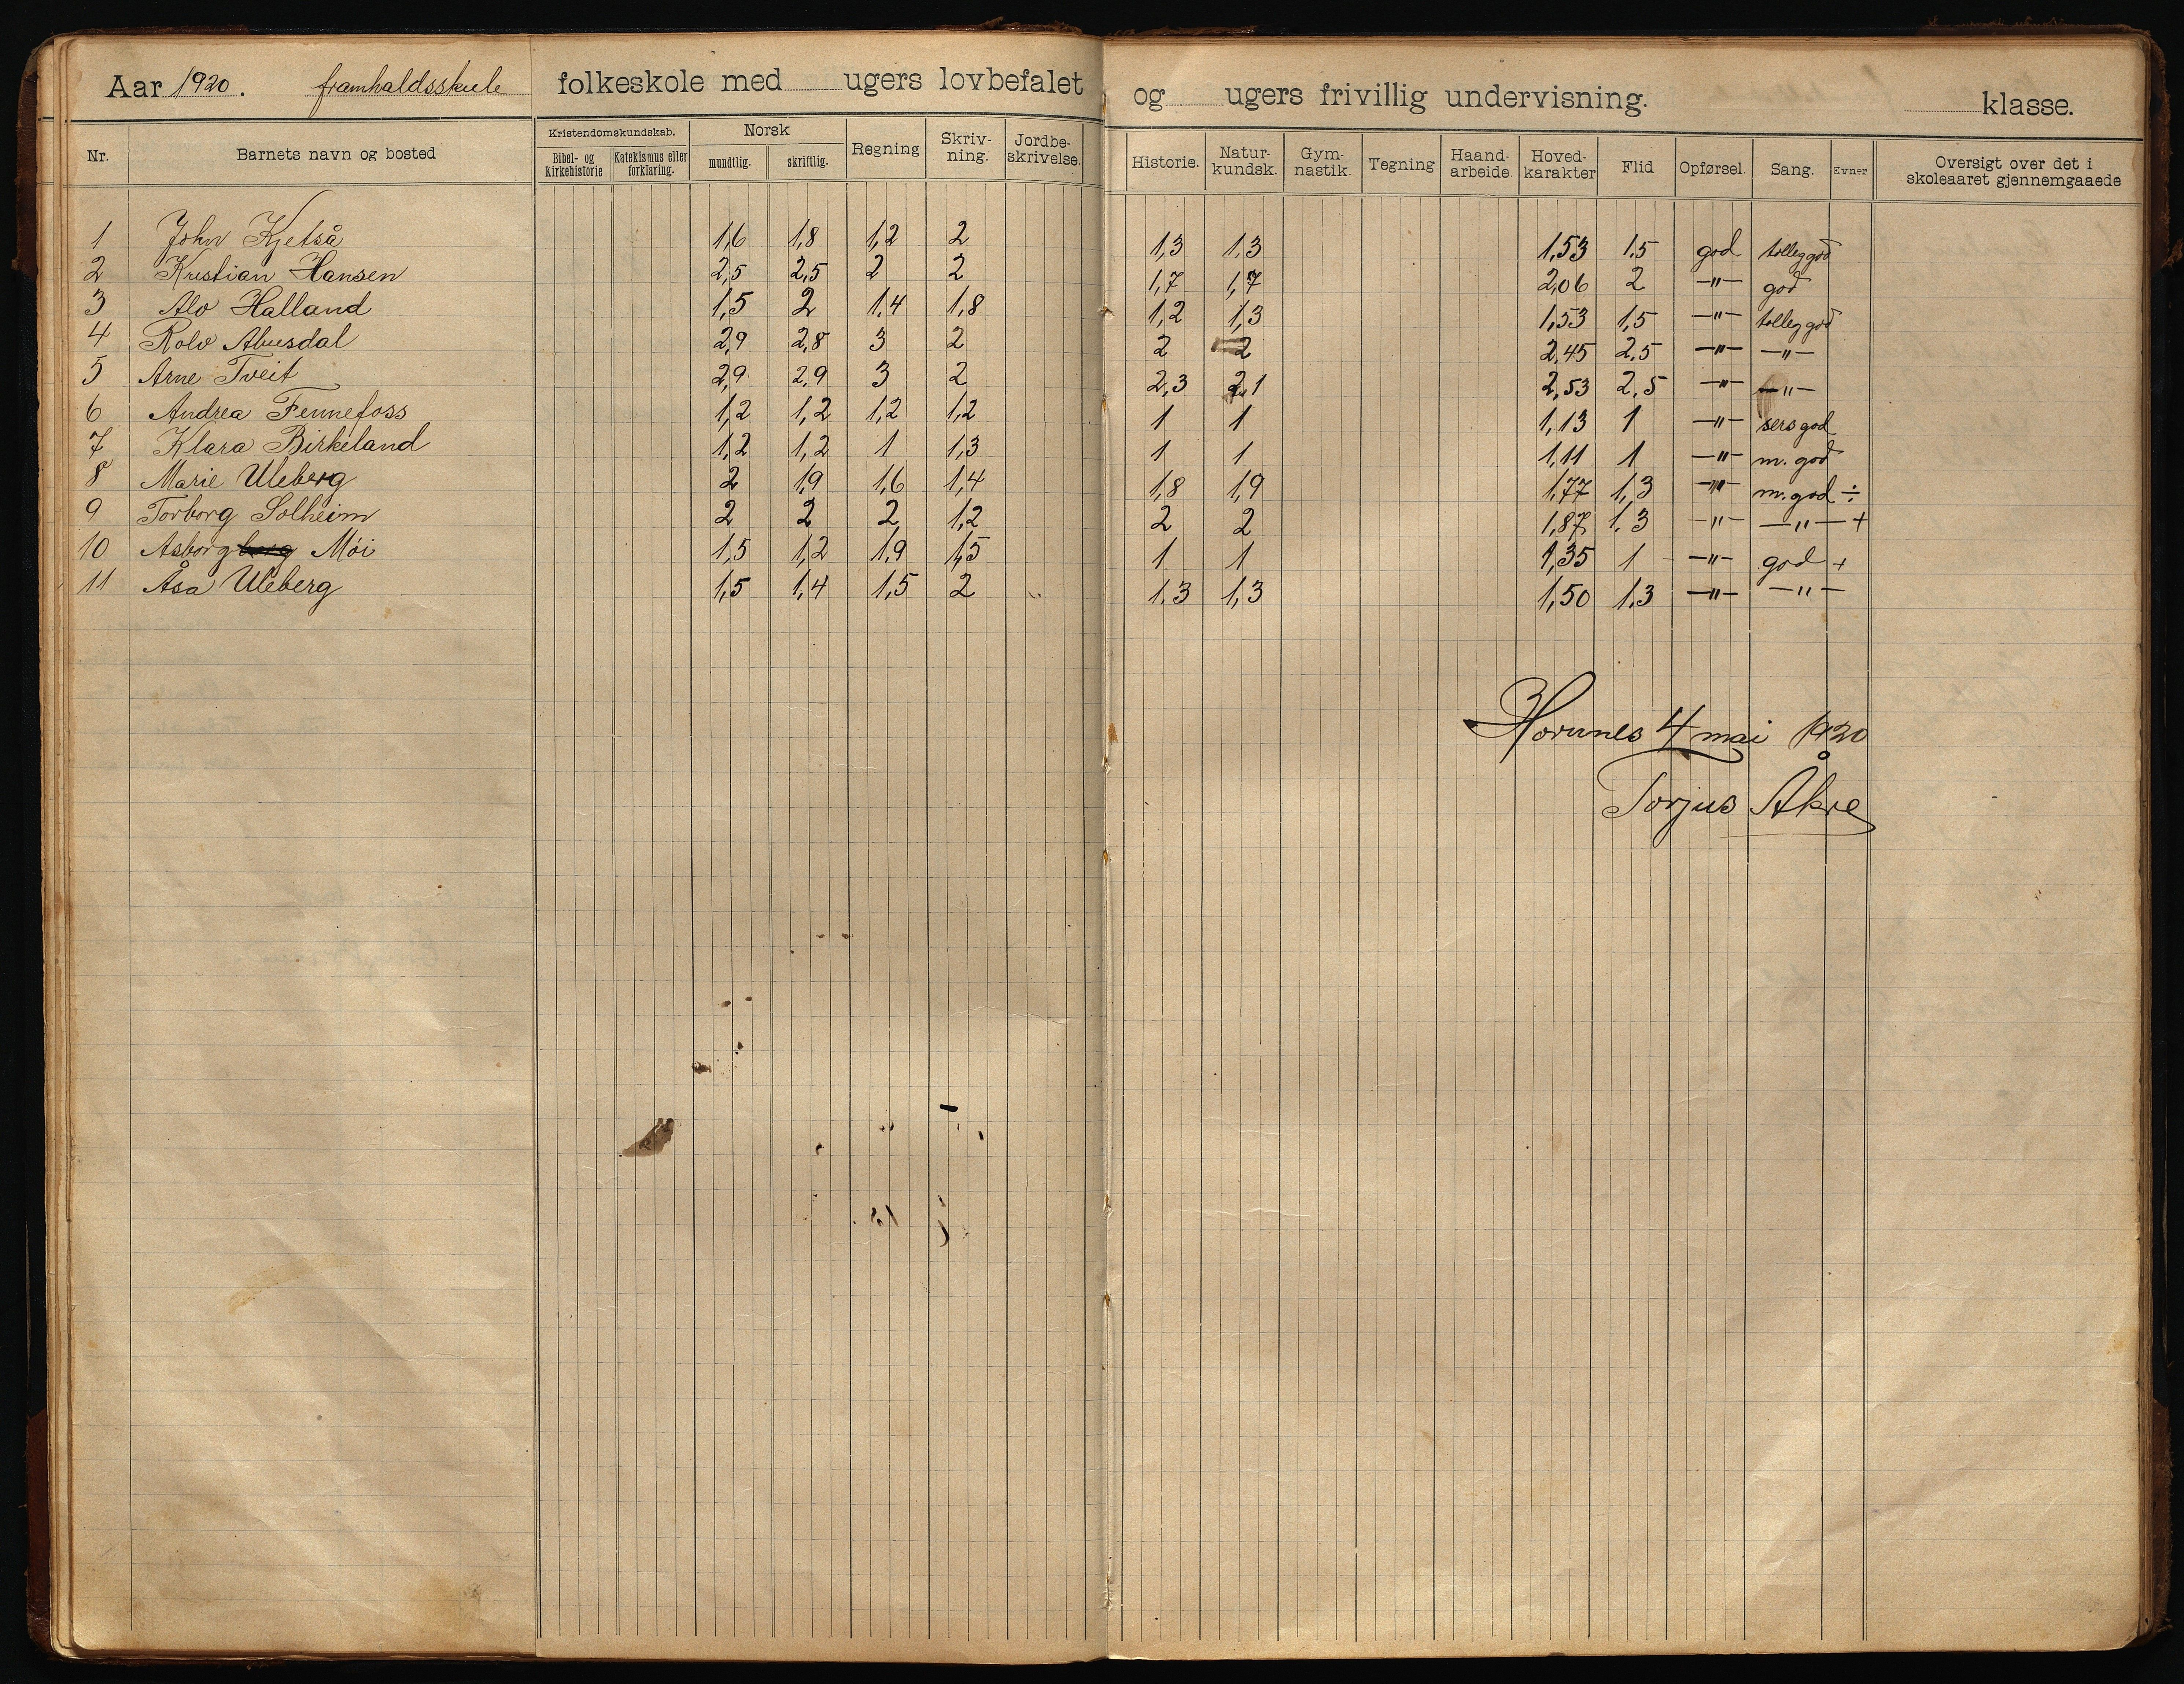 Aar 1920. framhaldsskule folkeskole med ugers lovbefalet og ugers frivillig undervisning. klasse.
Nr. Barnets navn og bosted Kristendomskundskab. Bibel- og Kirkehistorie Katekismus eller forklaring. Norsk mundtlig. skriftlig. Regning Skriv-ning. Jordbe-skrivelse. Historie. Natur-kundsk. Gym-nastik. Tegning Haand-arbeide. Hoved-karakter Flid Opførsel. Sang. Evner Oversigt over det i skoleaaret gjennemgaaede
1 John Kjetså 1,6 1,8 1,2 2 1,3 1,3 1,53 1.5 god tolleg god
2 Kristian Hansen 2,5 2,5 2 2 1,7 1,7 2,06 2 —"— god
3 Alv Halland 1,5 2 1,4 1,8 1,2 1,3 1,53 1,5 —"— tolleg god
4 Rolv Abusdal 2,9 2,8 3 2 2 2 2,45 2,5 —"— —"—
5 Arne Tveit 2,9 2,9 3 2 2,3 2,1 2,53 2,5 —"— —"—
6 Andrea Fennefoss 1,2 1,2 1,2 1,2 1 1 1,13 1 —"— sers god
7 Klara Birkeland 1,2 1,2 1 1,3 1 1 1,11 1 —"— m. god
8 Marie Uleberg 2 1,9 1,6 1,4 1,8 1,9 1,77 1,3 —"— m. god ÷
9 Torborg Solheim 2 2 2 1,2 2 2 1,87 1,3 —"— —"— +
10 Asborg berg Möi 1,5 1,2 1,9 1,5 1 1 1,35 1 —"— god +
11 Åsa Uleberg 1,5 1,4 1,5 2 1,3 1,3 1,50 1,3 —"— —"—
Hornnes 4 mai 1920
Torjus Åkre